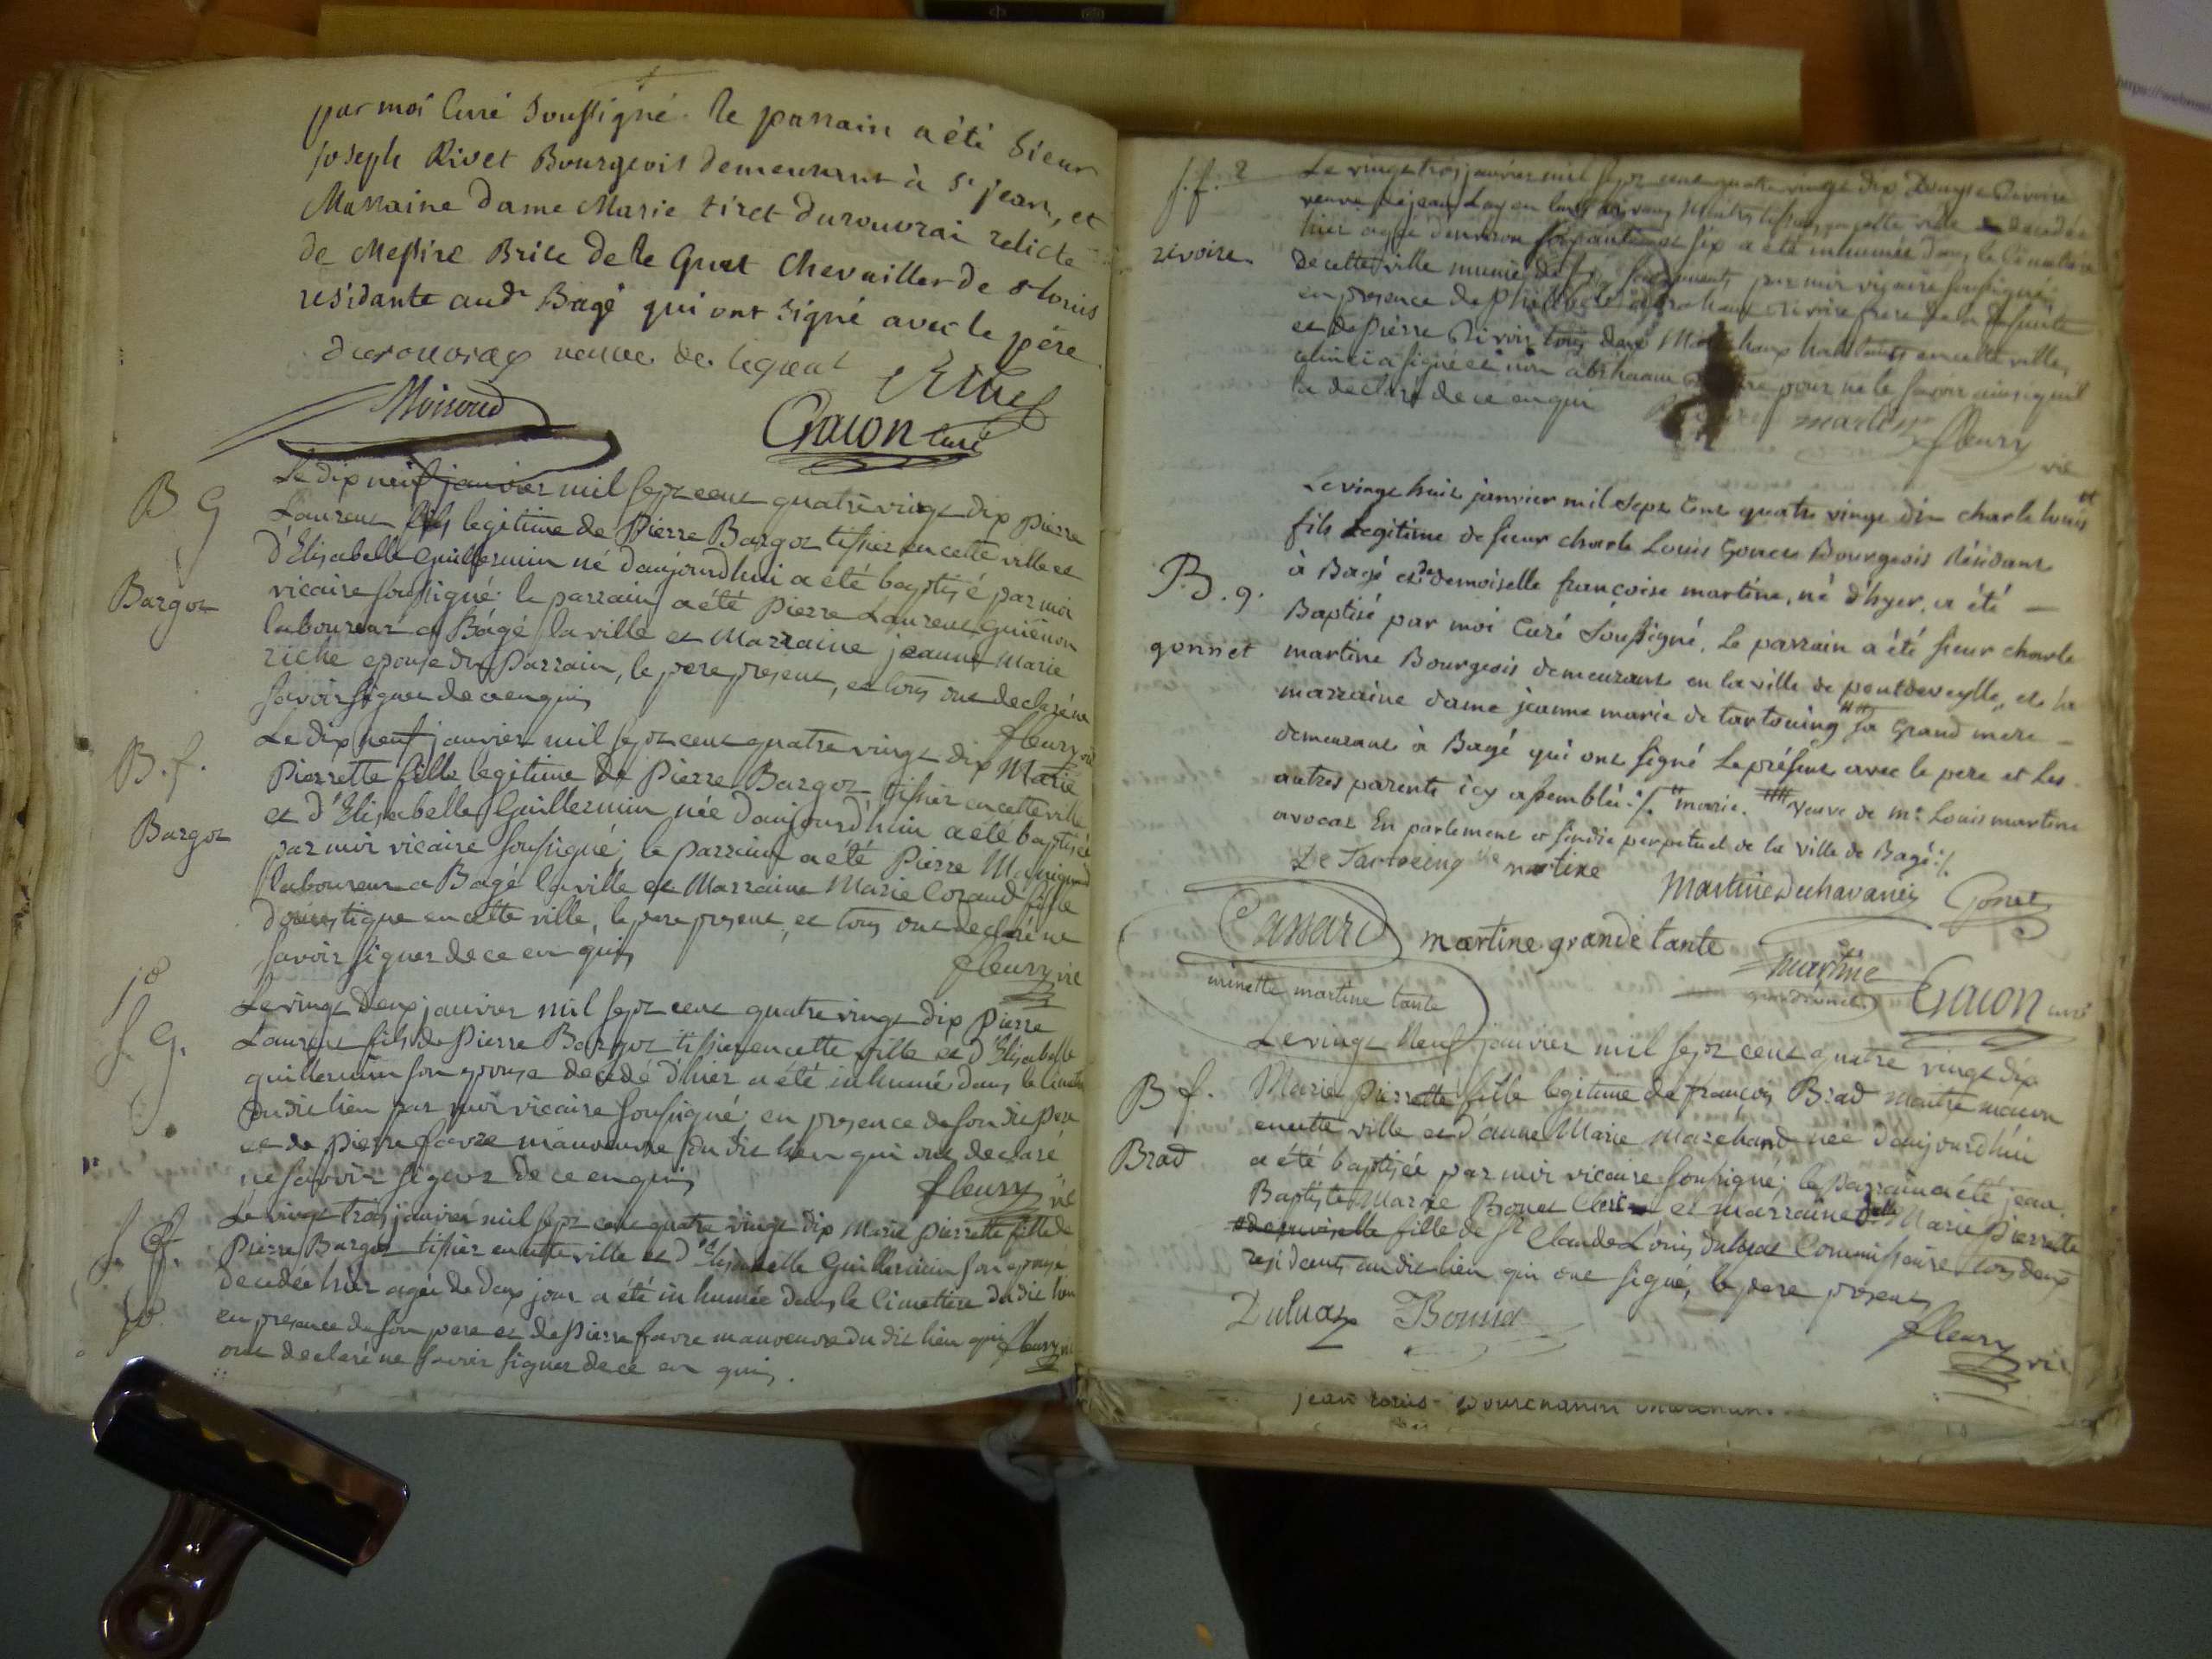 par moi Curé Soussigné. le parrain a été Sieur
joseph Rivet Bourgeois demeurant à St jean, et
Marraine dame Marie tiret durouvrai relicte
de Messire Brice de le Guet Chevailler de st louis
residante aud. Bagé qui ont signé avec le père
veuve de leguat
Rivet
Moiroud
Chacon Curé
B g
Bargot
Le dix neuf janvier mil sept cent quatre vingt dix pierre
Laurent fils legitime de Pierre Bargot tissier en cette ville et
d'Elisabelle Guillermin né d'aujourdhui a été baptisé par moi
vicaire soussigné: le parrain a été Pierre Laurent Guienon
laboureur a Bâgé la ville et Marraine jeanne Marie
riche epouse du Parrain, le pere present, et tous ont declaré ne
savoir signer de ce enquis
fleury vic
B. f.
Bargot
Le dix neuf janvier mil sept cent quatre vingt dix Marie
Pierrette fille legitime de Pierre Bargot tissier en cette ville
et d'Elisabelle Guillermin née d'aujourd'huin a été baptisée
par moi vicaire soussigné; le parrain a été Pierre
laboureur a Bâgé la ville et Marraine Marie Corand fille
domestique en cette ville, le pere present, et tous ont declaré ne
savoir signer de ce enquis
fleury vic
S g.
Le vingt deux janvier mil sept cent quatre vingt dix pierre
Laurent fils de Pierre Bargot tissier en cette ville et d'Elisabelle
guillermin son epouse decedé d'hier a été inhumé dans le cimetiere
dudit lieu par moi vicaire soussigné; en presence de son dit pere
et de pierre favre manoeuvre dudit lieu qui ont declaré
ne savoir signer de ce enquis
fleury vic
S. f.
Le vingt trois janvier mil sept cent quatre vingt dix Marie pierrette fille de
Pierre Bargot tissier en cette ville et d'Elisabelle Guillermin son epouse
decedée hier agée de deux jour a été inhumée dans le cimettiere dudit lieu
en presence de son pere et de Pierre favre manoeuvre du dit lieu qui
ont declaré ne savoir signer de ce enquis.
fleury vic
S. f. 2
revoire
Le vingt trois janvier mil sept cent quatre vingt dix Revoire
veuve de jean Lay en cette ville decedée
hier agée d'environ soixante et six a été inhumée dans le Cimetiere
de cette ville munie de sacrements par moi vicaire soussigné
en presence de revoire frere de la defunte
et de Pierre Revoire tous deux habitants en cette ville,
celui ci a signé et non abrhaam pour ne le savoir ainsi qu'il
la declaré de ce enquis
martin
fleury vic
B. g.
gonnet
Le vingt huit janvier mil sept cent quatre vingt dix charle louis
fils Legitime de sieur charle Louis Gonet Bourgeois Résidant
à Bagé et de demoiselle françoise martine, né d'hyer, a été
Baptisé par moi Curé Soussigné. Le parrain a été sieur charle
martine Bourgeois demeurant en la ville de pontdeveylle, et la
marraine dame jeanne marie de tartouing sa Grand mere
demeurant à Bagé qui ont signé Le présent avec le pere et les
autres parents icy assemblé ./. marie. veuve de mr Louis martine
avocat En parlement et sindic perpetuel de la ville de Bagé ./.
De Tartoeing martine
Martine Duchavanei
Gonet
martine grande tante
martine
minette martine tante
Chacon curé
B f.
Brad
Le vingt Neuf janvier mil sept cent quatre vingt dix
Marie Pierrette fille legitime de françois Brad maitre maçon
en cette ville et d'anne Marie Marchand née d'aujourd'hui
a été baptisée par moi vicaire soussigné; le parrain a été jean
Baptiste Marie Bonet Clerc et marraine delle Marie Pierrette
demoiselle fille de Sr Claude Louis Duluat Commissaire tous deux
residents au dit lieu qui ont signé, le pere present
Duluat
Bonnet
fleury vic
jean louis